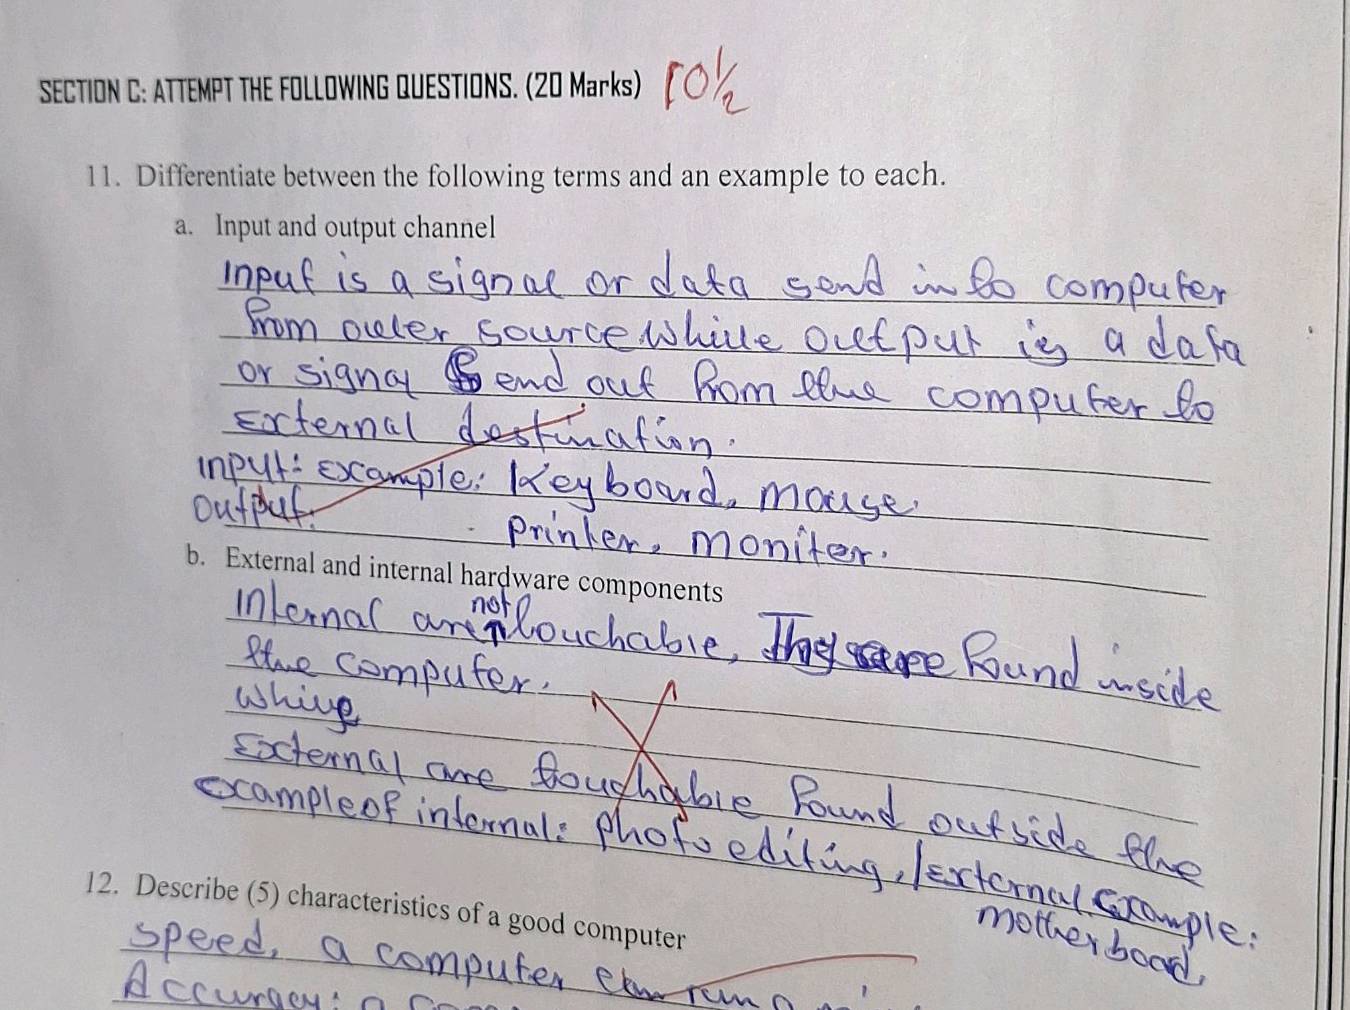 SECTION C: ATTEMPT THE FOLLOWING QUESTIONS. (20 Marks) 10 1/2
11. Differentiate between the following terms and an example to each.
a. Input and output channel
Input is a signal or data send in to computer
from outer source. While output is a data
or signal Send out from the computer to
External destination.
Input: example: Keyboard, mouse.
Output: printer, moniter.
b. External and internal hardware components
Internal are not touchable, They are Found inside
the computer.
While
External are touchable Found outside the
example of internal: photo editing, / External Example:
motherboard.
12. Describe (5) characteristics of a good computer
speed, a computer can run a
Accuracy: a